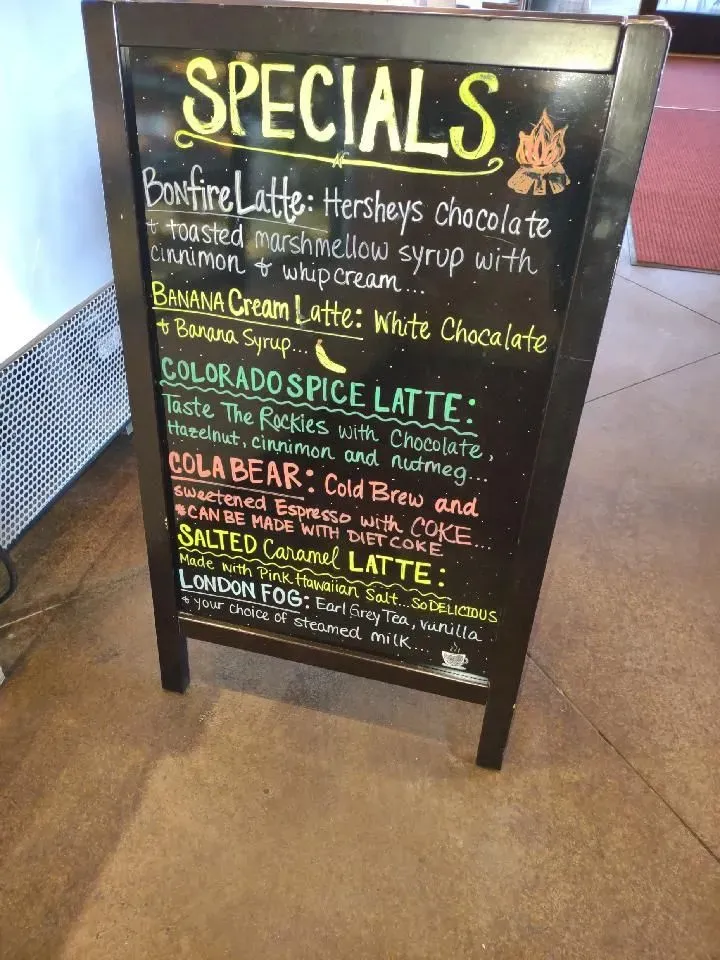 SPECIALS
Bonfire Latte: Hersheys chocolate
+ toasted marshmellow syrup with
cinnimon + whip cream...
BANANA Cream Latte: White Chocalate
+ Banana Syrup...
COLORADO SPICE LATTE:
Taste The Rockies with Chocolate,
Hazelnut, cinnimon and nutmeg...
COLA BEAR: Cold Brew and
sweetened Espresso with COKE...
*CAN BE MADE WITH DIET COKE
SALTED Caramel LATTE:
Made with Pink Hawaiian Salt...SO DELICIOUS
LONDON FOG: Earl Grey Tea, vanilla
+ your choice of steamed milk...